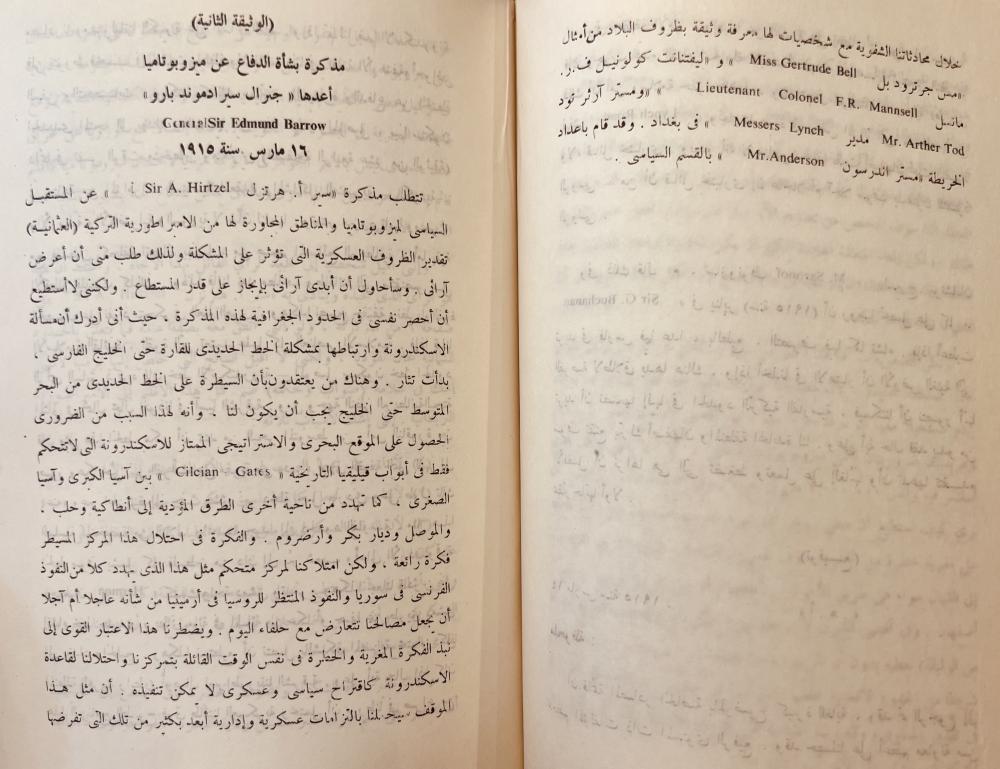 خلال محادثاتنا الشفوية مع شخصيات لها معرفة وثيقة بظروف البلاد من أمثال
«مس جرترود بل Miss Gertrude Bell » و «ليفتنانت كولونيل ف.ر.
مانسل Lieutenant Colonel F.R. Mannsell » «ومستر آرثر تود
Mr. Arther Tod مدير Messers Lynch » فى بغداد . وقد قام باعداد
الخريطة «مستر اندرسون Mr.Anderson » بالقسم السياسى .
(الوثيقة الثانية)
مذكرة بشأة الدفاع عن ميزوبوتاميا
أعدها « جنرال سير ادموند بارو»
General Sir Edmund Barrow
١٦ مارس سنة ١٩١٥
تتطلب مذكرة «سير أ. هرتزل Sir A. Hirtzel » عن المستقبل
السياسى لميزوبوتاميا والمناطق المجاورة لها من الامبراطورية التركية (العثمانية)
تقدير الظروف العسكرية التى تؤثر على المشكلة ولذلك طلب منى أن أعرض
آرائى . وسأحاول أن أبدى آرائى بإيجاز على قدر المستطاع . ولكنى لاأستطيع
أن أحصر نفسى فى الحدود الجغرافية لهذه المذكرة ، حيث أنى أدرك أن مسألة
الاسكندرونة وارتباطها بمشكلة الخط الحديدى للقارة حتى الخليج الفارسى ،
بدأت تثار . وهناك من يعتقدون بأن السيطرة على الخط الحديدى من البحر
المتوسط حتى الخليج يجب أن يكون لنا ، وأنه لهذا السبب من الضرورى
الحصول على الموقع البحرى والاستراتيجى الممتاز للاسكندرونة التى لاتتحكم
فقط فى أبواب قيليقيا التاريخية « Cilcian Gates » بين آسيا الكبرى وآسيا
الصغرى ، كما تهدد من ناحية أخرى الطرق المؤدية إلى أنطاكية وحلب ،
والموصل وديار بكر وأرضروم . والفكرة فى احتلال هذا المركز المسيطر
فكرة رائعة ، ولكن امتلاكنا لمركز متحكم مثل هذا الذى يهدد كلا من النفوذ
الفرنسى فى سوريا والنفوذ المنتظر للروسيا فى أرمينيا من شأنه عاجلا أم آجلا
أن يجعل مصالحنا تتعارض مع حلفاء اليوم . ويضطرنا هذا الاعتبار القوى إلى
نبذ الفكرة المغرية والخطرة فى نفس الوقت القائلة بتمركزنا واحتلالنا لقاعدة
الاسكندرونة كاقتراح سياسى وعسكرى لا يمكن تنفيذه . أن مثل هذا
الموقف سيحملنا بالتزامات عسكرية وإدارية أبعد بكثير من تلك التى تفرضها